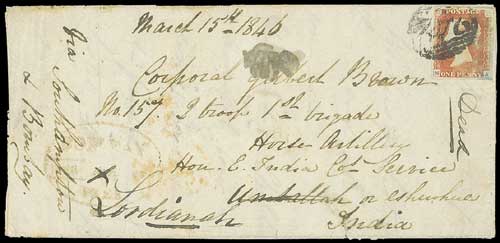 March 15th 1846
POSTAGE
ONE PENNY
Corporal Gilbert Brown
No. 157 2 troop 1st brigade
Horse Artillery
Hon. E. India Co. Service
Umballah or elsewhere
x Lordianah
India
Via Southampton
& Bombay
Dead